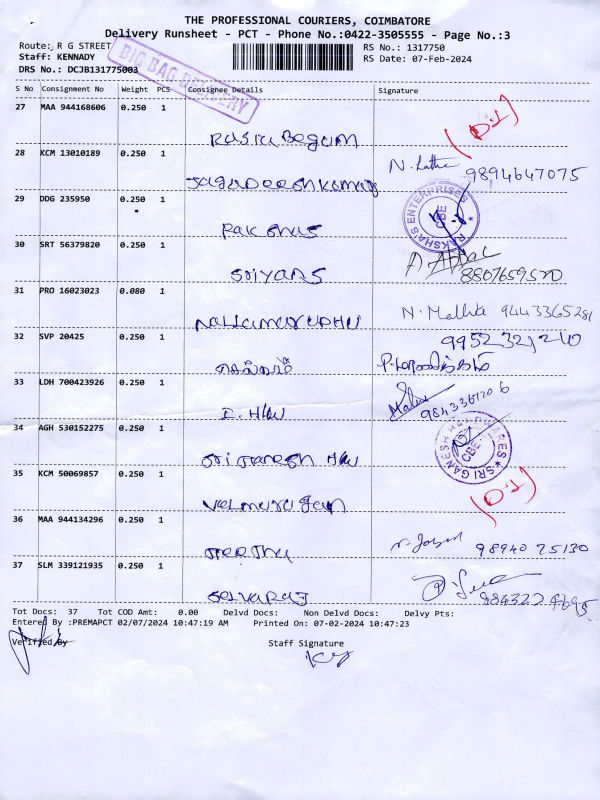 THE PROFESSIONAL COURIERS, COIMBATORE
Delivery Runsheet - PCT - Phone No.:0422-3505555 - Page No.:3
Route: R G STREET
RS No.: 1317750
Staff: KENNADY
RS Date: 07-Feb-2024
DRS No.: DCJB131775003
BIG BAG DELIVERY
S No Consignment No Weight PCS Consignee Details Signature
27 MAA 944168606 0.250 1 Begam (D.I)
28 KCM 13010189 0.250 1 N. Latha 9894647075
29 DDG 235950 0.250 1 RAKSHA'S ENTERPRISES CBE
30 SRT 56379820 0.250 1 Sriyans 8807659520
31 PRO 16023023 0.080 1 N. 9443365281
32 SVP 20425 0.250 1
33 LDH 700423926 0.250 1 I. H/W
34 AGH 530152275 0.250 1 Sri Ganesh H/W SRI GANESH HARDWARES CBE
35 KCM 50069857 0.250 1 Velmurugan (D.I)
36 MAA 944134296 0.250 1 Geetha 98940 25130
37 SLM 339121935 0.250 1 Selvaraj
Tot Docs: 37 Tot COD Amt: 0.00 Delvd Docs: Non Delvd Docs: Delvy Pts:
Entered By :PREMAPCT 02/07/2024 10:47:19 AM Printed On: 07-02-2024 10:47:23
Verified By Staff Signature